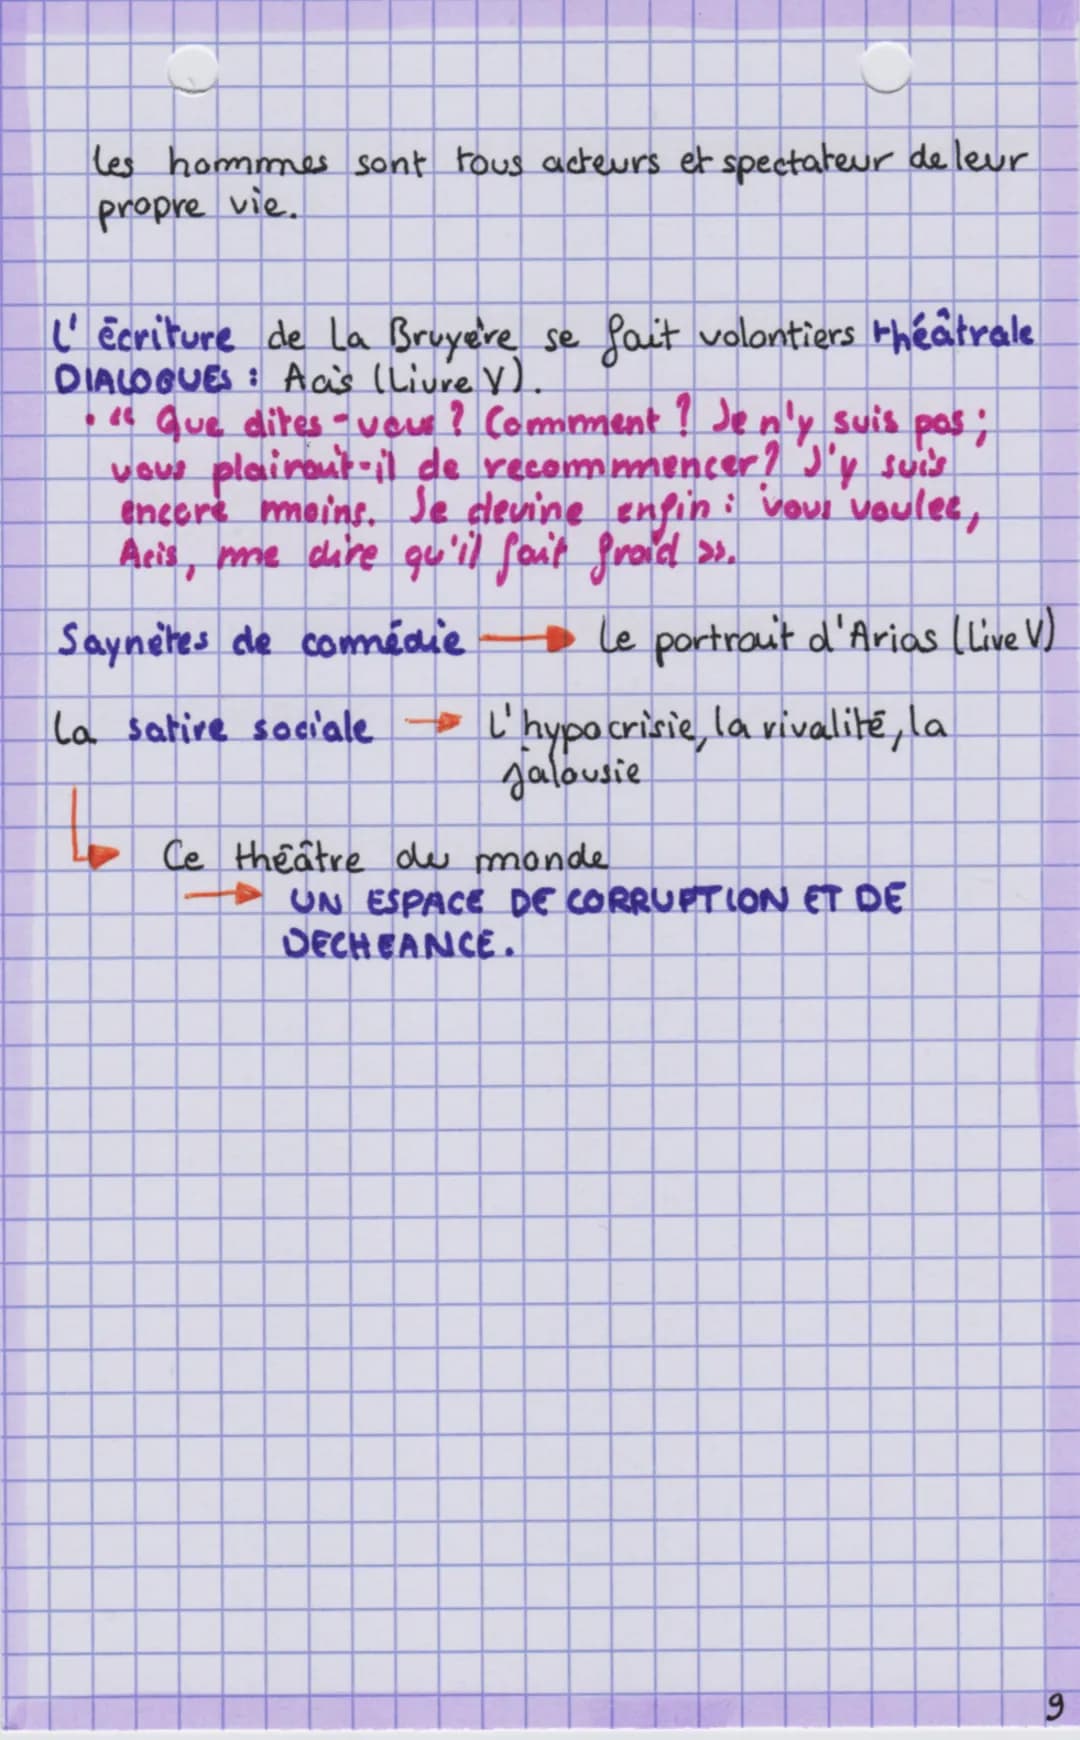 les hommes sont tous acteurs et spectateur de leur
propre vie.
L'écriture de La Bruyère se fait volontiers théâtrale
DIALOGUES : Acis (Livre V).
• " Que dites-vous ? Comment ? Je n'y suis pas ;
vous plairait-il de recommmencer ? J'y suis
encore moins. Je devine enfin : vous voulez,
Acis, me dire qu'il fait froid ».
Saynètes de comédie → le portrait d'Arias (Live V)
La satire sociale → L'hypocrisie, la rivalité, la
jalousie
Ce théâtre du monde
→ UN ESPACE DE CORRUPTION ET DE
DECHEANCE.
9